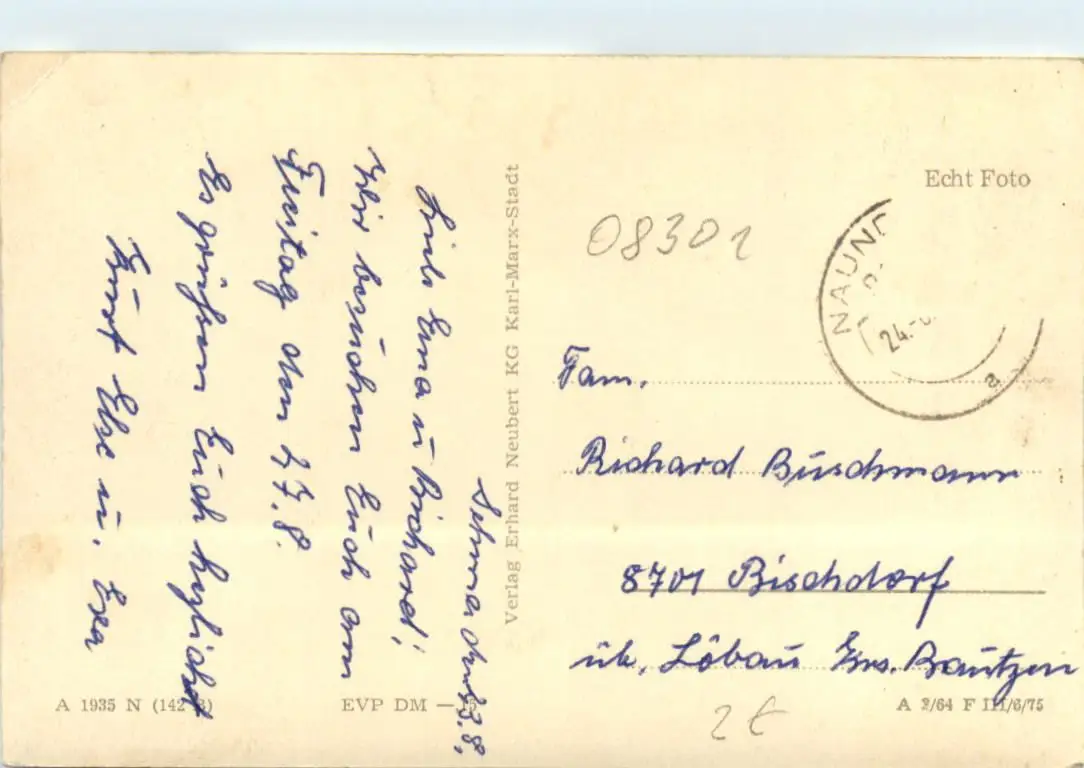 den 23.8.
Liebe Erna u Richard!
Wir besuchen Euch am
Freitag den 27.8.
Es grüßen Euch herzlichst
Kurt Else u.
Verlag Erhard Neubert KG Karl-Marx-Stadt
Echt Foto
08301
NAUN
24.
a
Fam.
Richard Buschmann
8701 Bischdorf
üb. Löbau Krs. Bautzen
A 1935 N (142
EVP DM —
A 2/64 F III/6/75
2 €